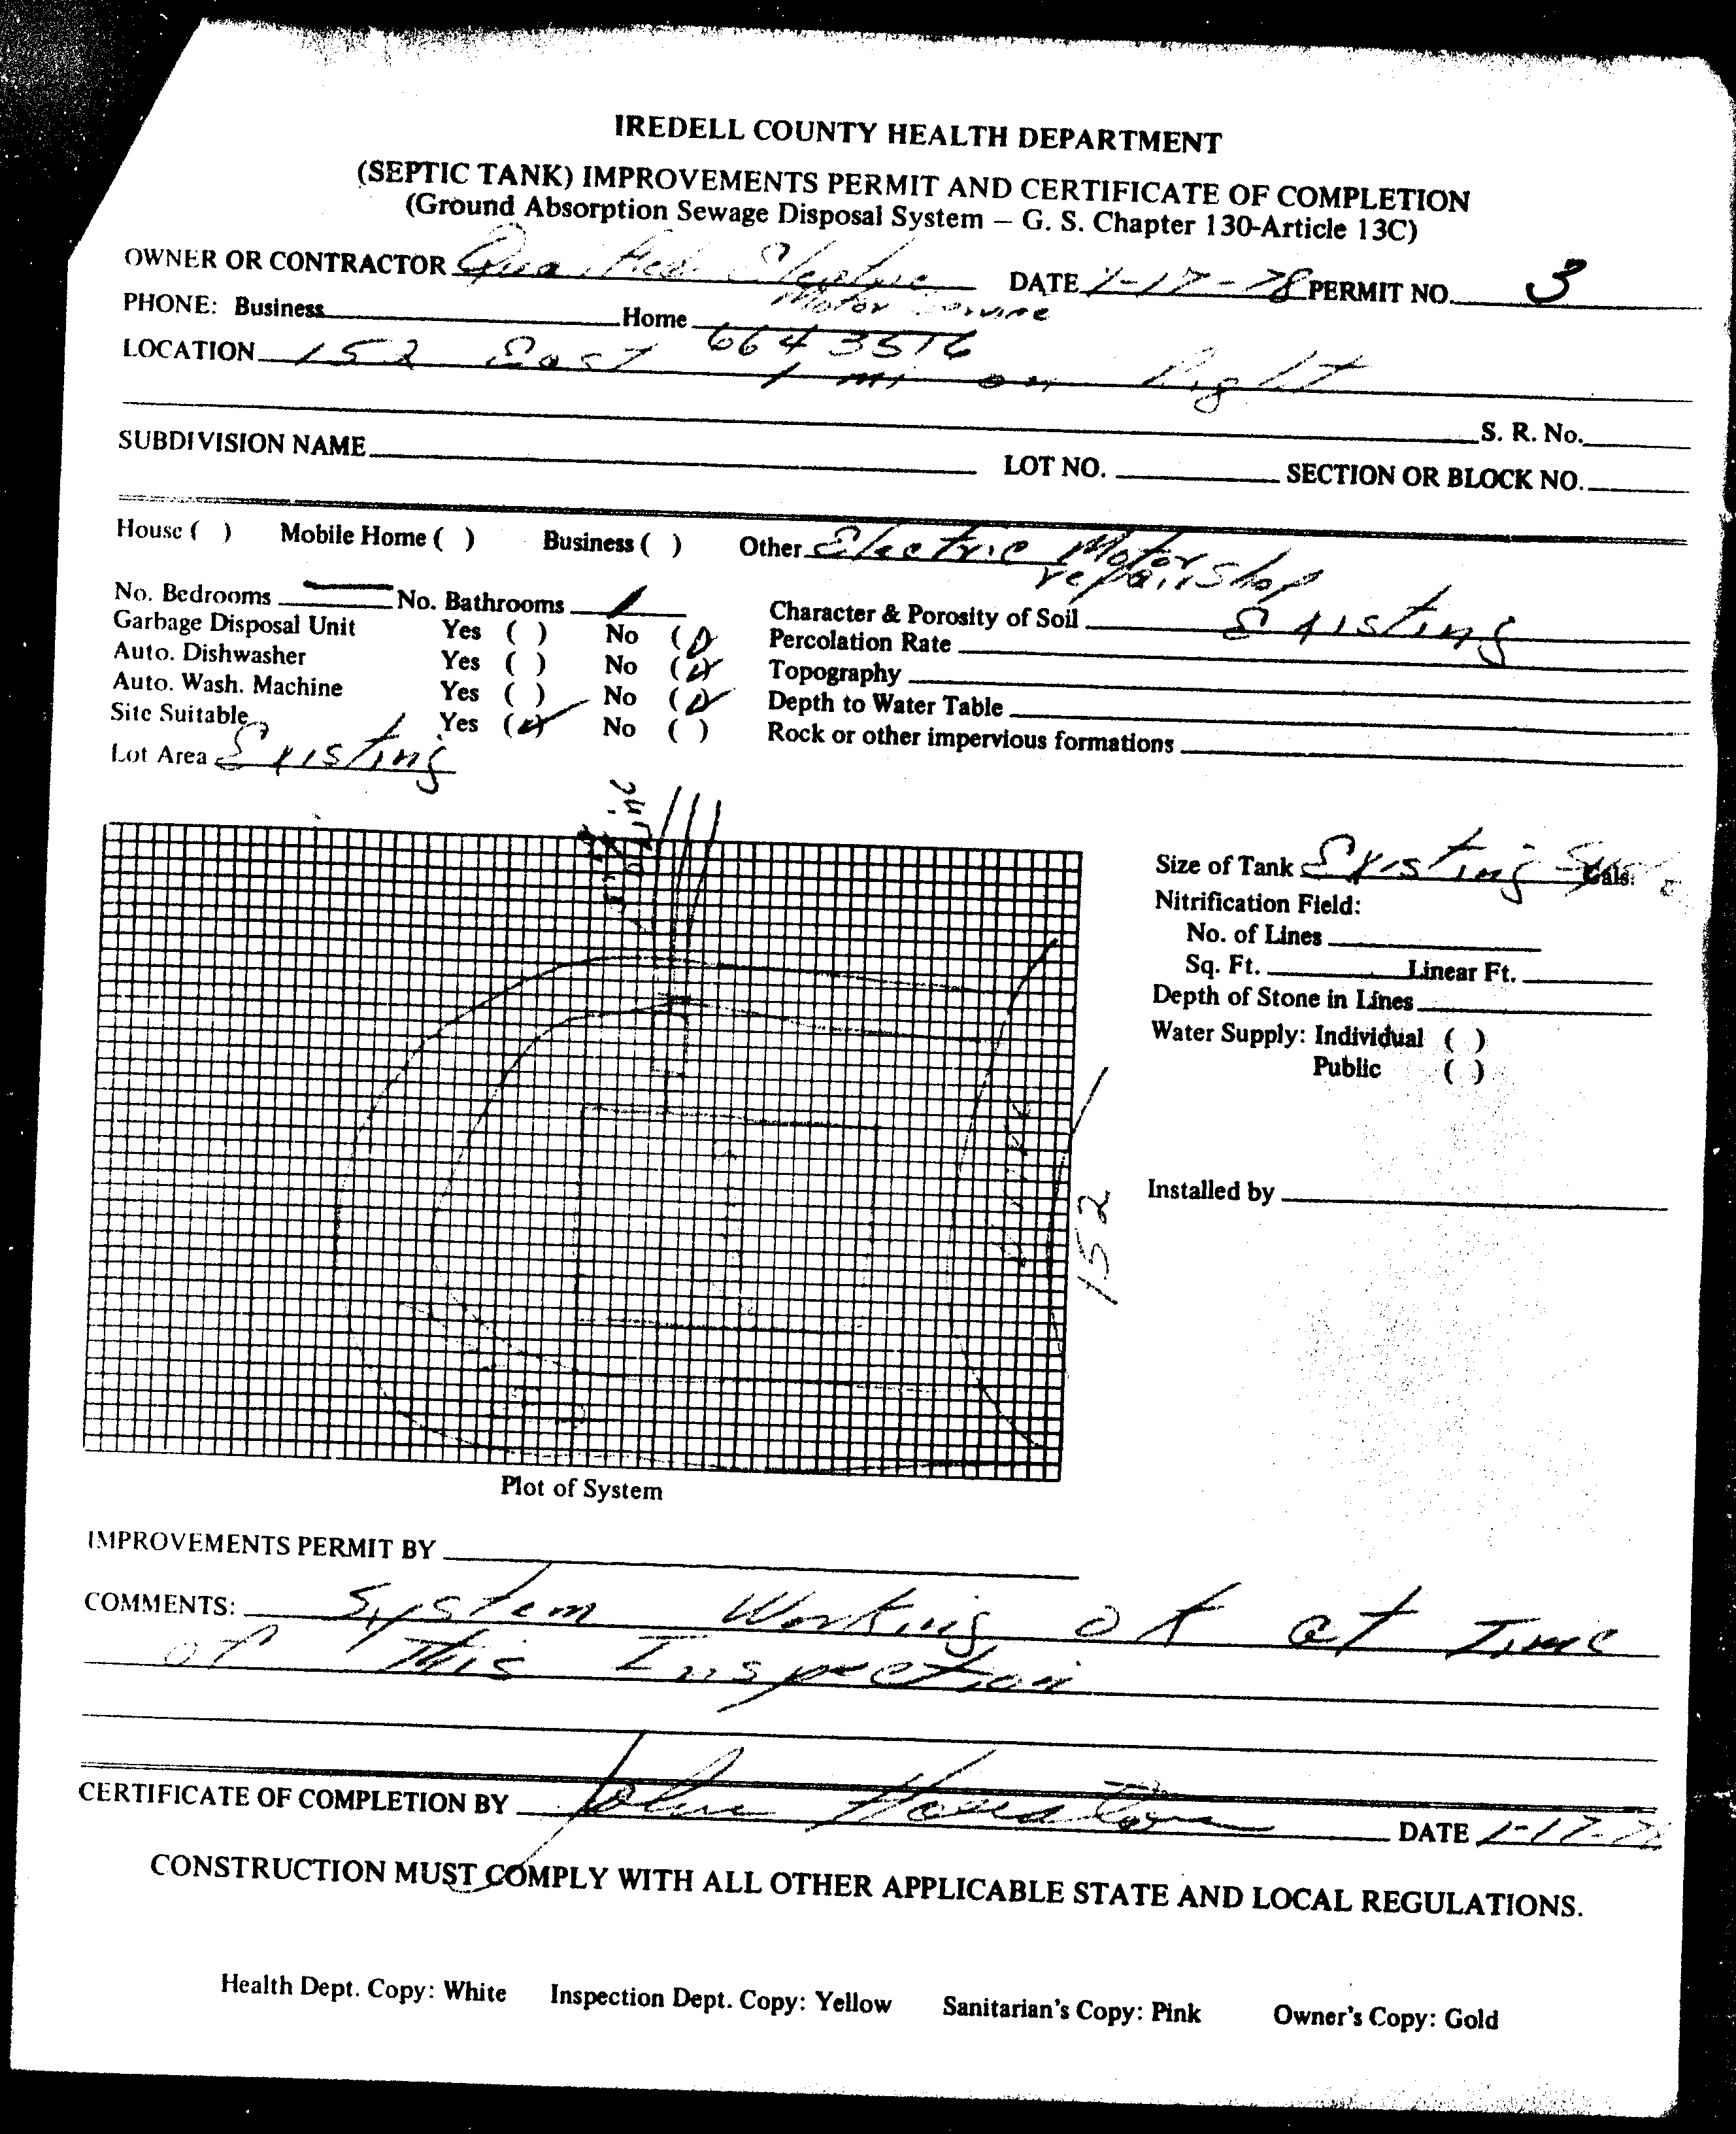 IREDELL COUNTY HEALTH DEPARTMENT
(SEPTIC TANK) IMPROVEMENTS PERMIT AND CERTIFICATE OF COMPLETION
(Ground Absorption Sewage Disposal System – G. S. Chapter 130-Article 13C)
OWNER OR CONTRACTOR DATE 1-17-78 PERMIT NO. 3
Motor Service
PHONE: Business Home 664 3516
LOCATION 152 East 1 mi on Right
S. R. No.
SUBDIVISION NAME LOT NO. SECTION OR BLOCK NO.
House ( ) Mobile Home ( ) Business ( ) Other Electric Motor
repair Shop
No. Bedrooms — No. Bathrooms 1 Character & Porosity of Soil Existing
Garbage Disposal Unit Yes ( ) No (✓) Percolation Rate
Auto. Dishwasher Yes ( ) No (✓) Topography
Auto. Wash. Machine Yes ( ) No (✓) Depth to Water Table
Site Suitable Yes (✓) No ( ) Rock or other impervious formations
Lot Area Existing
Size of Tank Existing Gals.
Nitrification Field:
No. of Lines
Sq. Ft. Linear Ft.
Depth of Stone in Lines
Water Supply: Individual ( )
Public ( )
152
Installed by
Plot of System
IMPROVEMENTS PERMIT BY
COMMENTS: System Working OK at Time
of This Inspection
CERTIFICATE OF COMPLETION BY John Houston DATE 1-17-78
CONSTRUCTION MUST COMPLY WITH ALL OTHER APPLICABLE STATE AND LOCAL REGULATIONS.
Health Dept. Copy: White Inspection Dept. Copy: Yellow Sanitarian's Copy: Pink Owner's Copy: Gold